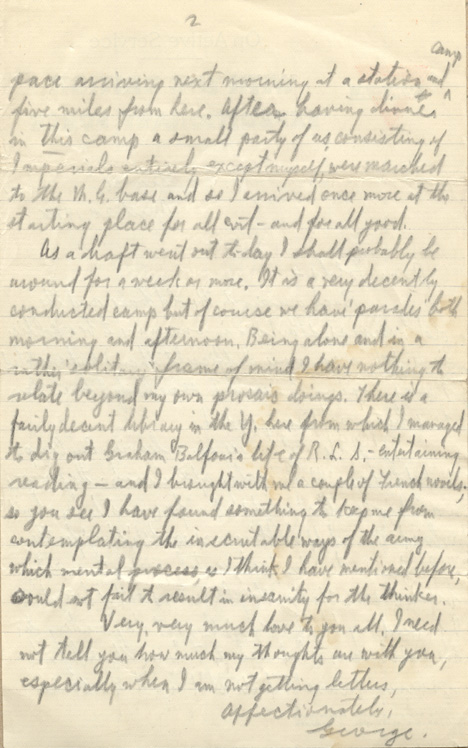 2
pace arriving next morning at a station and camp
five miles from here. After having dinner
in this camp a small party of us consisting of
Imperials entirely except myself, were marched
to the M.G. base and so I arrived once more at the
starting place for all evil - and for all good.
As a draft went out to-day I shall probably be
around for a week or more. It is a very decently
conducted camp but of course we have parades both
morning and afternoon. Being alone and in a
solitary frame of mind I have nothing to
relate beyond my own prosaic doings. There is a
fairly decent library in the Y. here from which I managed
to dig out Graham Balfour's life of R.L.S. - entertaining
reading - and I brought with me a couple of French novels,
so you see I have found something to keep me from
contemplating the inscrutable ways of the army
which mental process, as I think I have mentioned before,
could not fail to result in insanity for the thinker.
Very, very much love to you all. I need
not tell you how much my thoughts are with you,
especially when I am not getting letters,
Affectionately,
George.